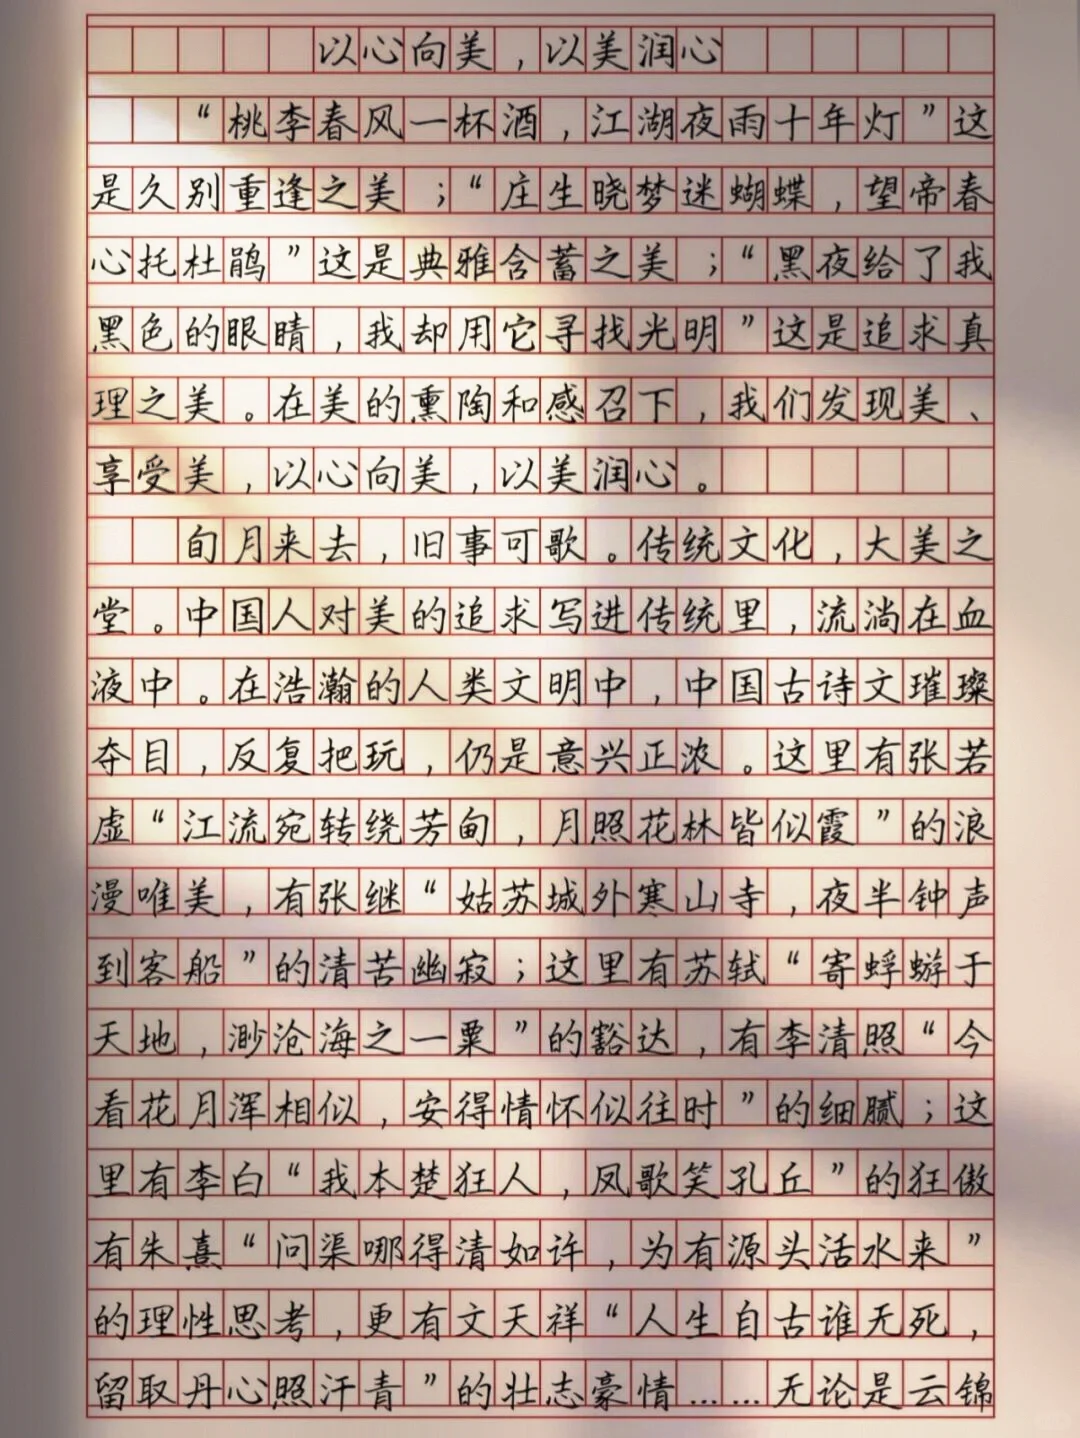 以心向美，以美润心
“桃李春风一杯酒，江湖夜雨十年灯”这
是久别重逢之美；“庄生晓梦迷蝴蝶，望帝春
心托杜鹃”这是典雅含蓄之美；“黑夜给了我
黑色的眼睛，我却用它寻找光明”这是追求真
理之美。在美的熏陶和感召下，我们发现美、
享受美，以心向美，以美润心。
旬月来去，旧事可歌。传统文化，大美之
堂。中国人对美的追求写进传统里，流淌在血
液中。在浩瀚的人类文明中，中国古诗文璀璨
夺目，反复把玩，仍是意兴正浓。这里有张若
虚“江流宛转绕芳甸，月照花林皆似霞”的浪
漫唯美，有张继“姑苏城外寒山寺，夜半钟声
到客船”的清苦幽寂；这里有苏轼“寄蜉蝣于
天地，渺沧海之一粟”的豁达，有李清照“今
看花月浑相似，安得情怀似往时”的细腻；这
里有李白“我本楚狂人，凤歌笑孔丘”的狂傲
有朱熹“问渠哪得清如许，为有源头活水来”
的理性思考，更有文天祥“人生自古谁无死，
留取丹心照汗青”的壮志豪情……无论是云锦